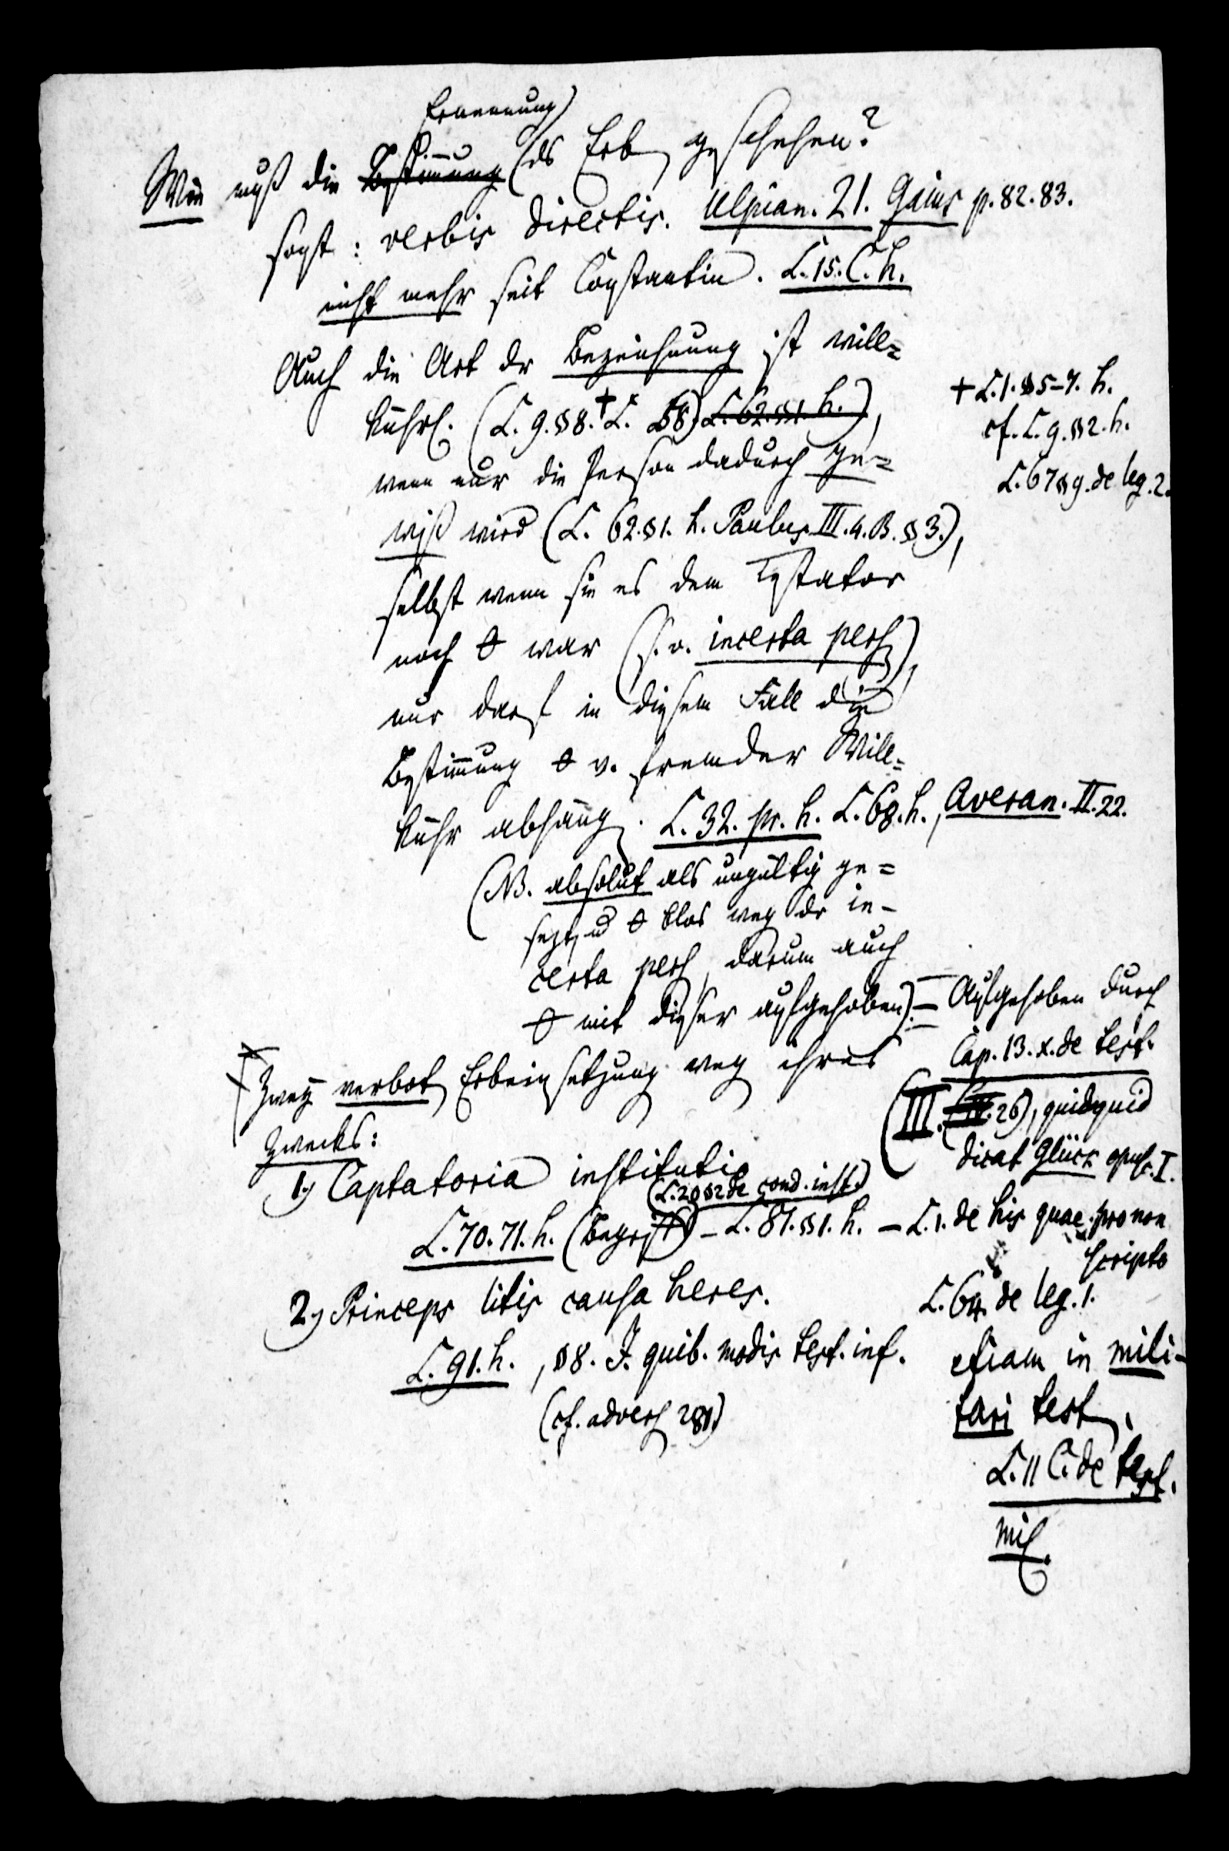 Ernennung
Wie muß die Bestimmung des Erben geschehen?
sonst: verbis directis. Ulpian. 21. Gaius p. 82. 83.
nicht mehr seit Constantin. L. 15. C. h.
Auch die Art der Bezeichnung ist will=
kührl. (L. 9. §8. + L. 58) L. 62. §1. h.),
+ L. 1. §5-7. h.
cf. L. 9. §2. h.
L. 67 §9. de leg. 2.
wenn nur die Person dadurch ge=
wiß wird (L. 62. §1. h. Paulus III. 4. B. §3.),
selbst wenn sie es dem Testator
noch θ war (s. o. incerta pers),
nur darf in diesem Fall die
Bestimmung θ v. fremder Will=
kühr abhängen. L. 32. pr. h. L. 68. h., Averan. II. 22.
(NB. absolut als ungültig ge=
setzt, u θ blos wegen der in-
certa pers, darum auch
θ mit dieser aufgehoben). – Aufgehoben durch
Cap. 13. x. de test.
(III. (IV. 26), quidquid
dicat Glück opusc. I.
Zwey verbotene Erbeinsetzungen wegen ihres
Zwecks:
1.) Captatoria institutio
(L. 20 §2 de cond. inst.)
L. 70. 71. h. (Begriff) – L. 81. §1. h. – L. 1. de his quae pro non
scriptis
L. 64. de leg. 1.
etiam in mili-
tari test.
L. 11 C. de test.
mil.
2.) Princeps litis causa heres.
L. 91. h., §8. J. quib. modis test. inf.
(cf. advers 281)